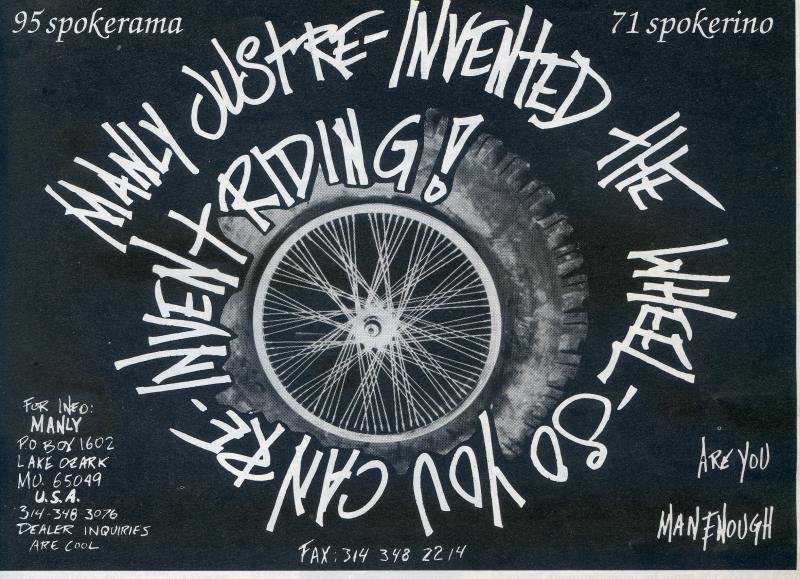 95 spokerama
71 spokerino
MANLY JUST RE-INVENTED THE WHEEL-SO YOU CAN RE-INVENT RIDING!
FOR INFO:
MANLY
P.O BOX 1602
LAKE OZARK
MO. 65049
U.S.A.
314-348-3076
DEALER INQUIRIES
ARE COOL
FAX: 314 348 2214
ARE YOU
MAN ENOUGH